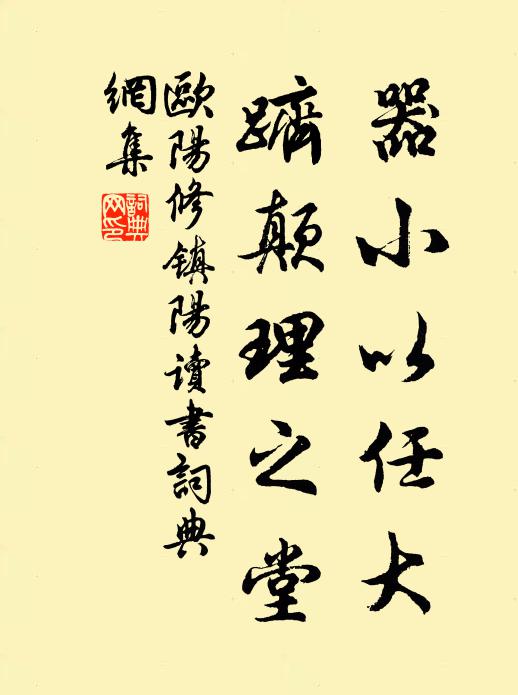 器小以任大
躋顛理之堂
歐陽修鎮陽讀書詞典
網集
詞典網印